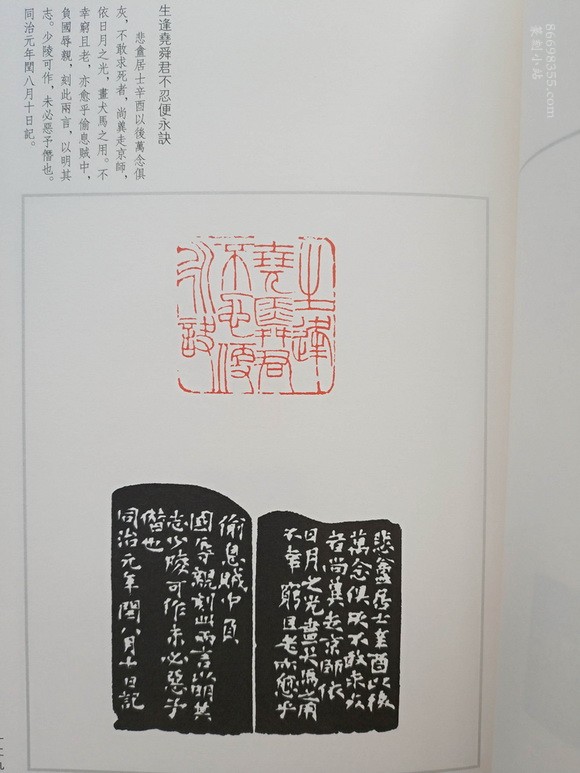 生逢堯舜君不忍便永訣
悲盦居士辛酉以後萬念俱
灰，不敢求死者，尚冀走京師，
依日月之光，畫犬馬之用。不
幸窮且老，亦愈乎偷息賊中，
負國辱親，刻此兩言，以明其
志。少陵可作，未必惡予僭也。
同治元年閏八月十日記。
生逢
堯舜君
不忍便
永訣
悲盦居士辛酉以後
萬念俱灰不敢求死
者尚冀走京師依
日月之光畫犬馬之用
不幸窮且老亦愈乎
偷息賊中負
國辱親刻此兩言以明其
志少陵可作未必惡予
僭也
同治元年閏八月十日記
一二九
86698355.com
篆刻小站